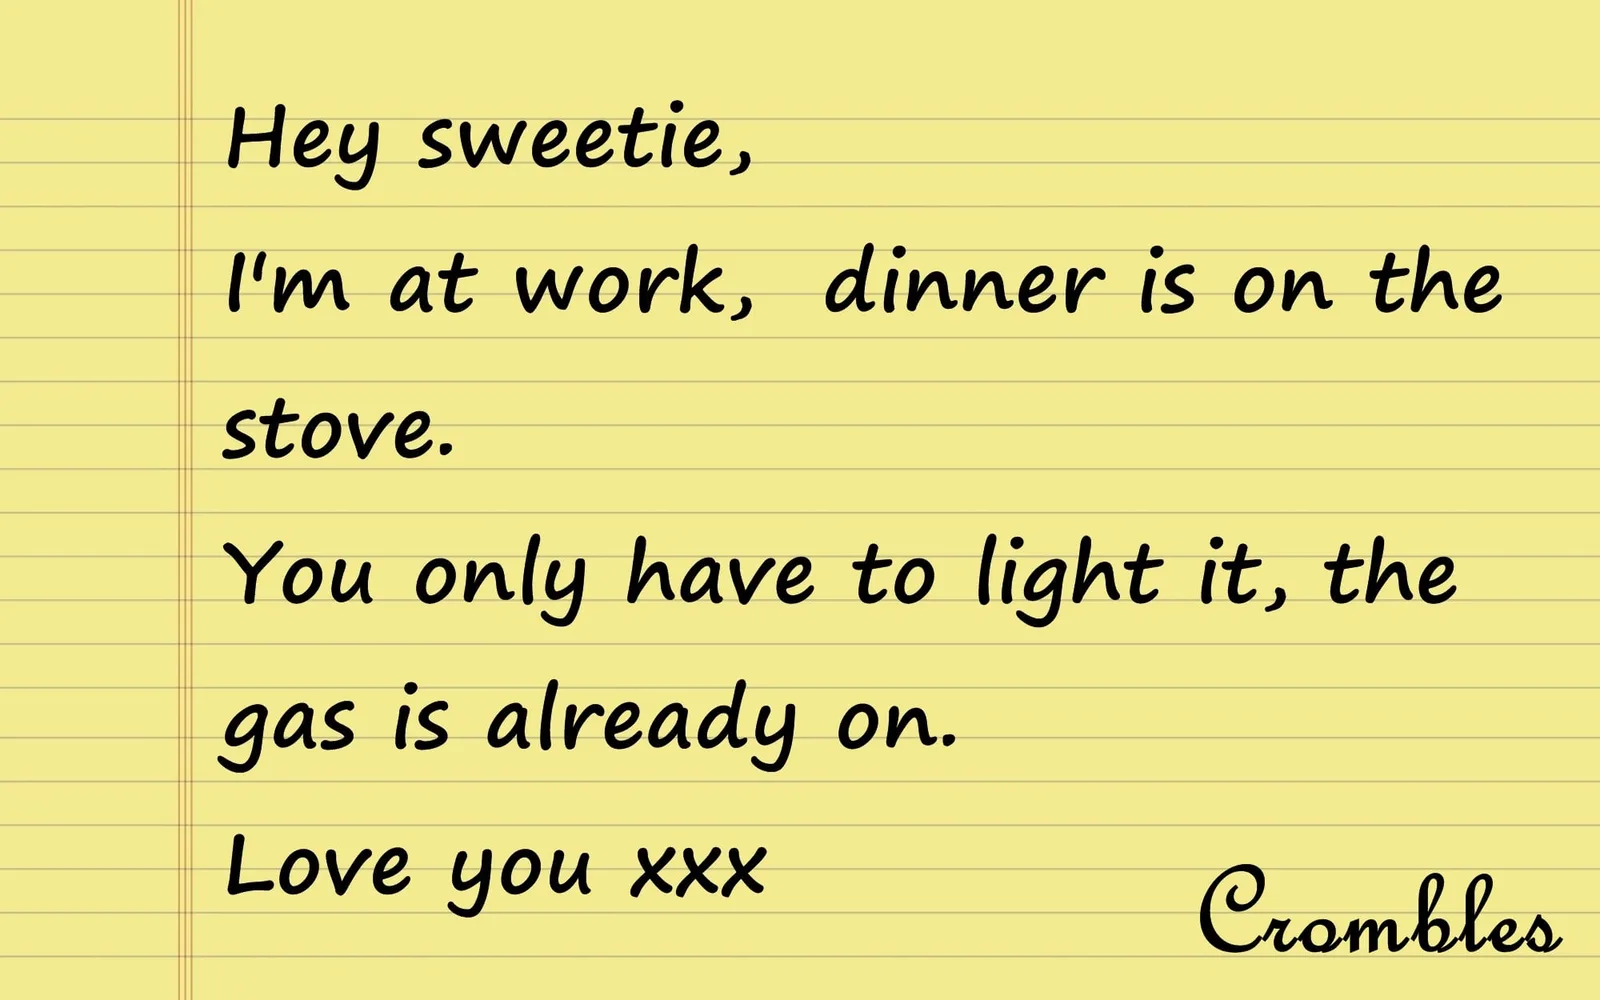 Hey sweetie,
I'm at work,  dinner is on the
stove.
You only have to light it, the
gas is already on.
Love you xxx
Crombles